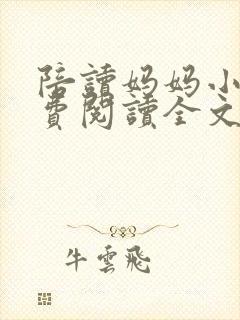 陪讀妈妈小
費閱讀全文
牛雲飛